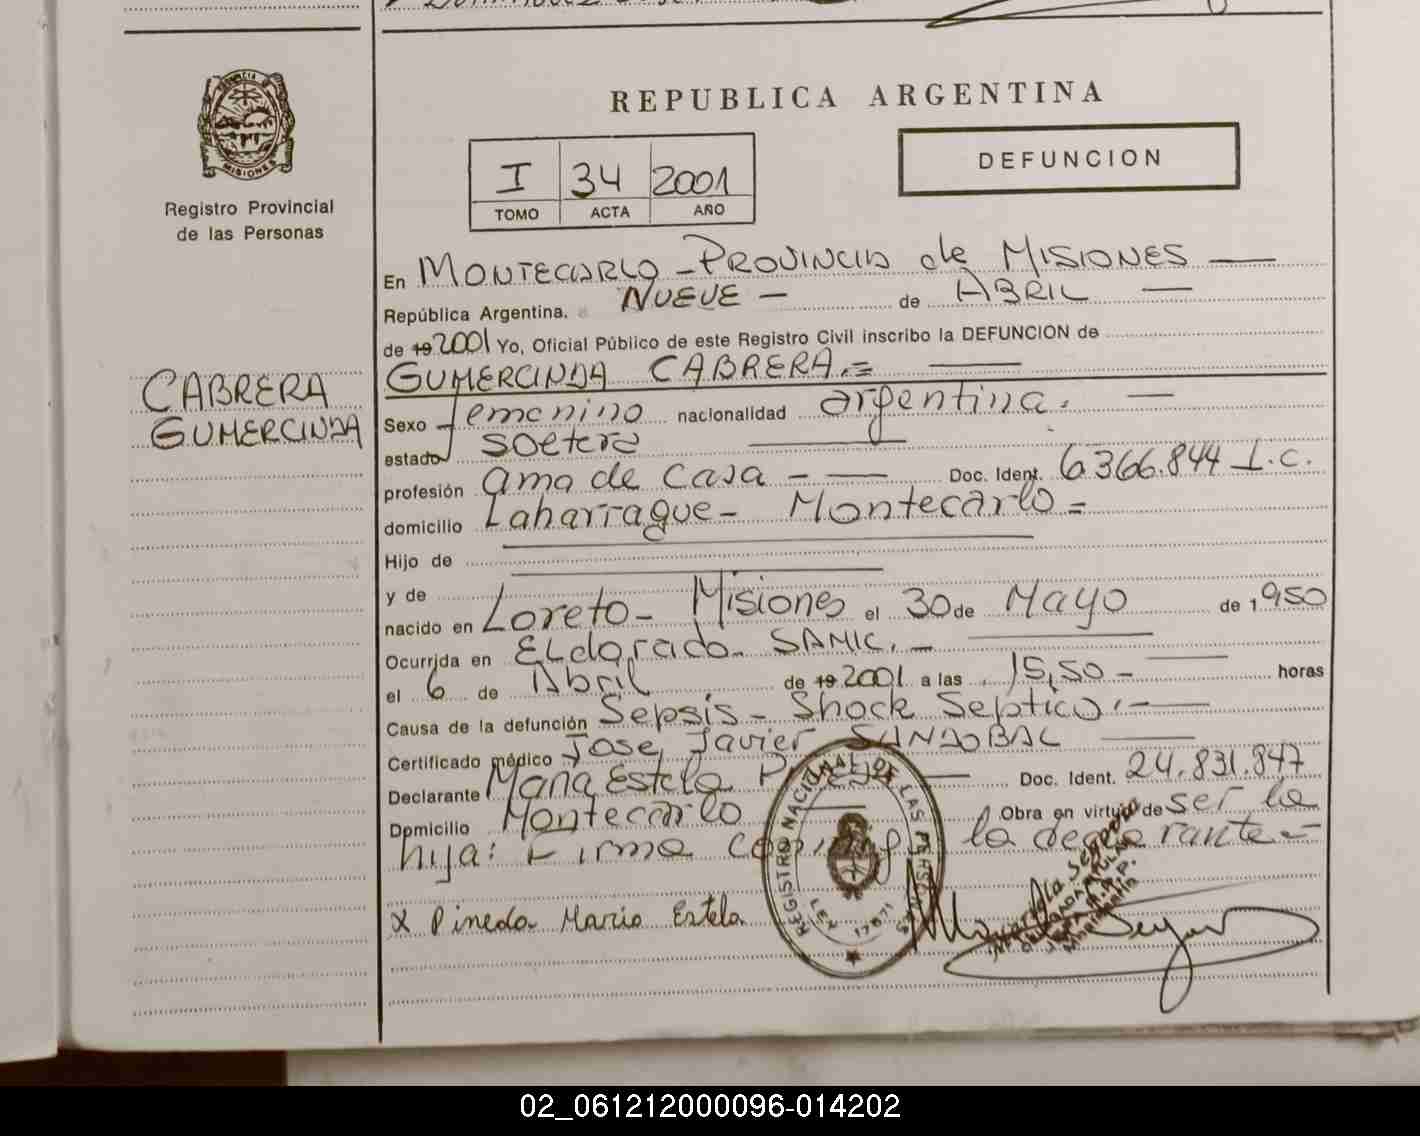 REPUBLICA ARGENTINA
PROVINCIA DE
MISIONES
Registro Provincial
de las Personas
I 34 2001
TOMO ACTA AÑO
DEFUNCION
En MONTECARLO - PROVINCIA de MISIONES —
República Argentina. NUEVE — de ABRIL —
de 19 2001 Yo, Oficial Público de este Registro Civil inscribo la DEFUNCION de
GUMERCINDA CABRERA.= —
CABRERA
GUMERCINDA
Sexo femenino nacionalidad argentina. —
estado soltera —
profesión ama de casa - — Doc. Ident. 6366.844 L.C.
domicilio Laharrague - Montecarlo =
Hijo de —
y de —
nacido en Loreto - Misiones el 30 de Mayo de 1950
Ocurrida en ELdorado. SAMIC. -
el 6 de Abril de 19 2001 a las 15,50 - horas
Causa de la defunción Sepsis - Shock Septico. - —
Certificado médico Jose Javier SANDOBAL —
Declarante Maria Estela — Doc. Ident. 24.831.847
Domicilio Montecarlo — Obra en virtud de ser la
hija: Firma la declarante -
x Pineda Maria Estela
REGISTRO NACIONAL DE LAS PERSONAS
LEY 17671
02_061212000096-014202